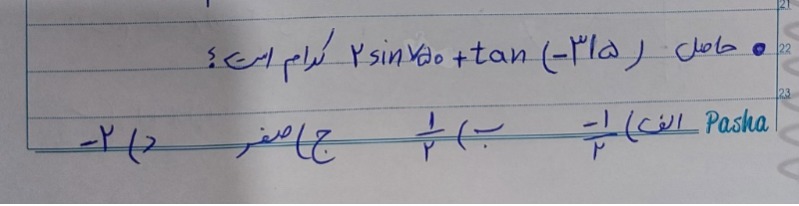 21
حاصل ۲ sin ۷۵۰ + tan (-۳۱۵) کدام است؟ 22
23
الف) -۱/۲ ب) ۱/۲ ج) صفر د) -۲ Pasha